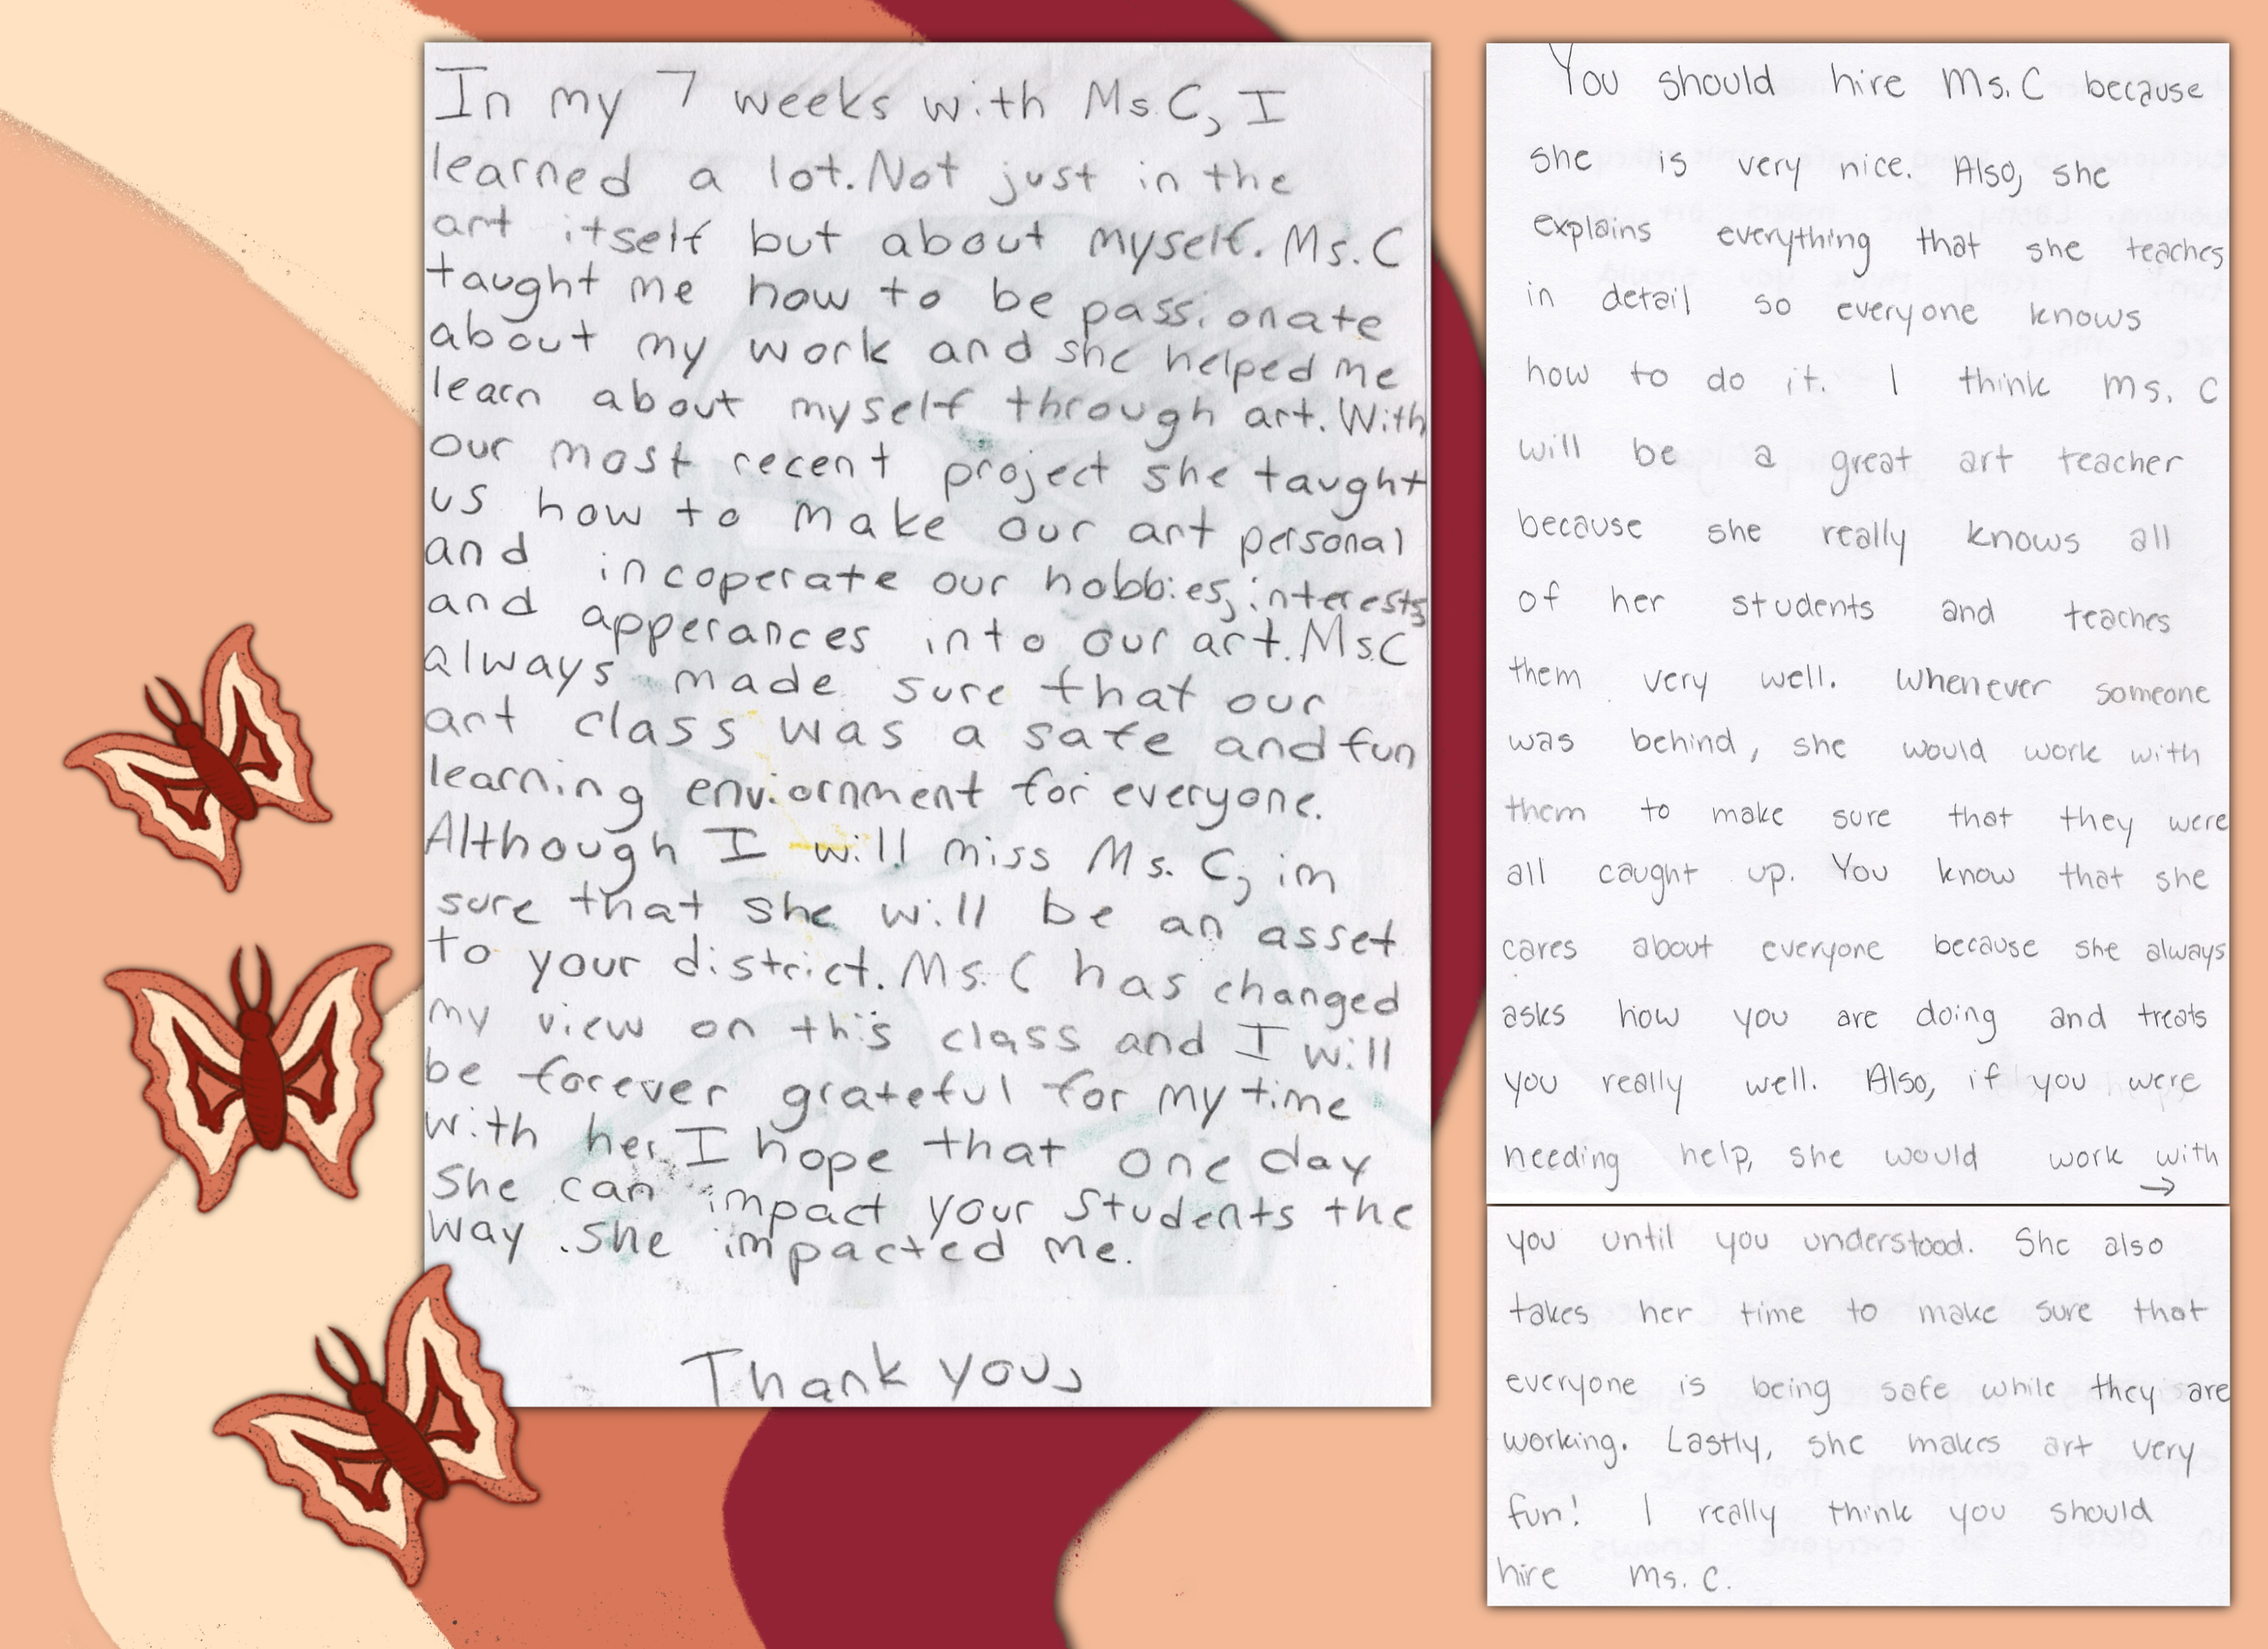 In my 7 weeks with Ms.C, I
learned a lot. Not just in the
art itself but about myself. Ms.C
taught me how to be passionate
about my work and she helped me
learn about myself through art. With
our most recent project she taught
us how to make our art personal
and incoperate our hobbies, interests
and apperances into our art. Ms.C
always made sure that our
art class was a safe and fun
learning enviornment for everyone.
Although I will miss Ms. C, im
sure that she will be an asset
to your district. Ms. C has changed
my view on this class and I will
be forever grateful for my time
with her. I hope that one day
She can impact your students the
way she impacted me.
Thank you,
You should hire Ms. C because
she is very nice. Also, she
explains everything that she teaches
in detail so everyone knows
how to do it. I think Ms. C
will be a great art teacher
because she really knows all
of her students and teaches
them very well. Whenever someone
was behind, she would work with
them to make sure that they were
all caught up. You know that she
cares about everyone because she always
asks how you are doing and treats
you really well. Also, if you were
needing help, she would work with
→
you until you understood. She also
takes her time to make sure that
everyone is being safe while they are
working. Lastly, she makes art very
fun! I really think you should
hire Ms. C.